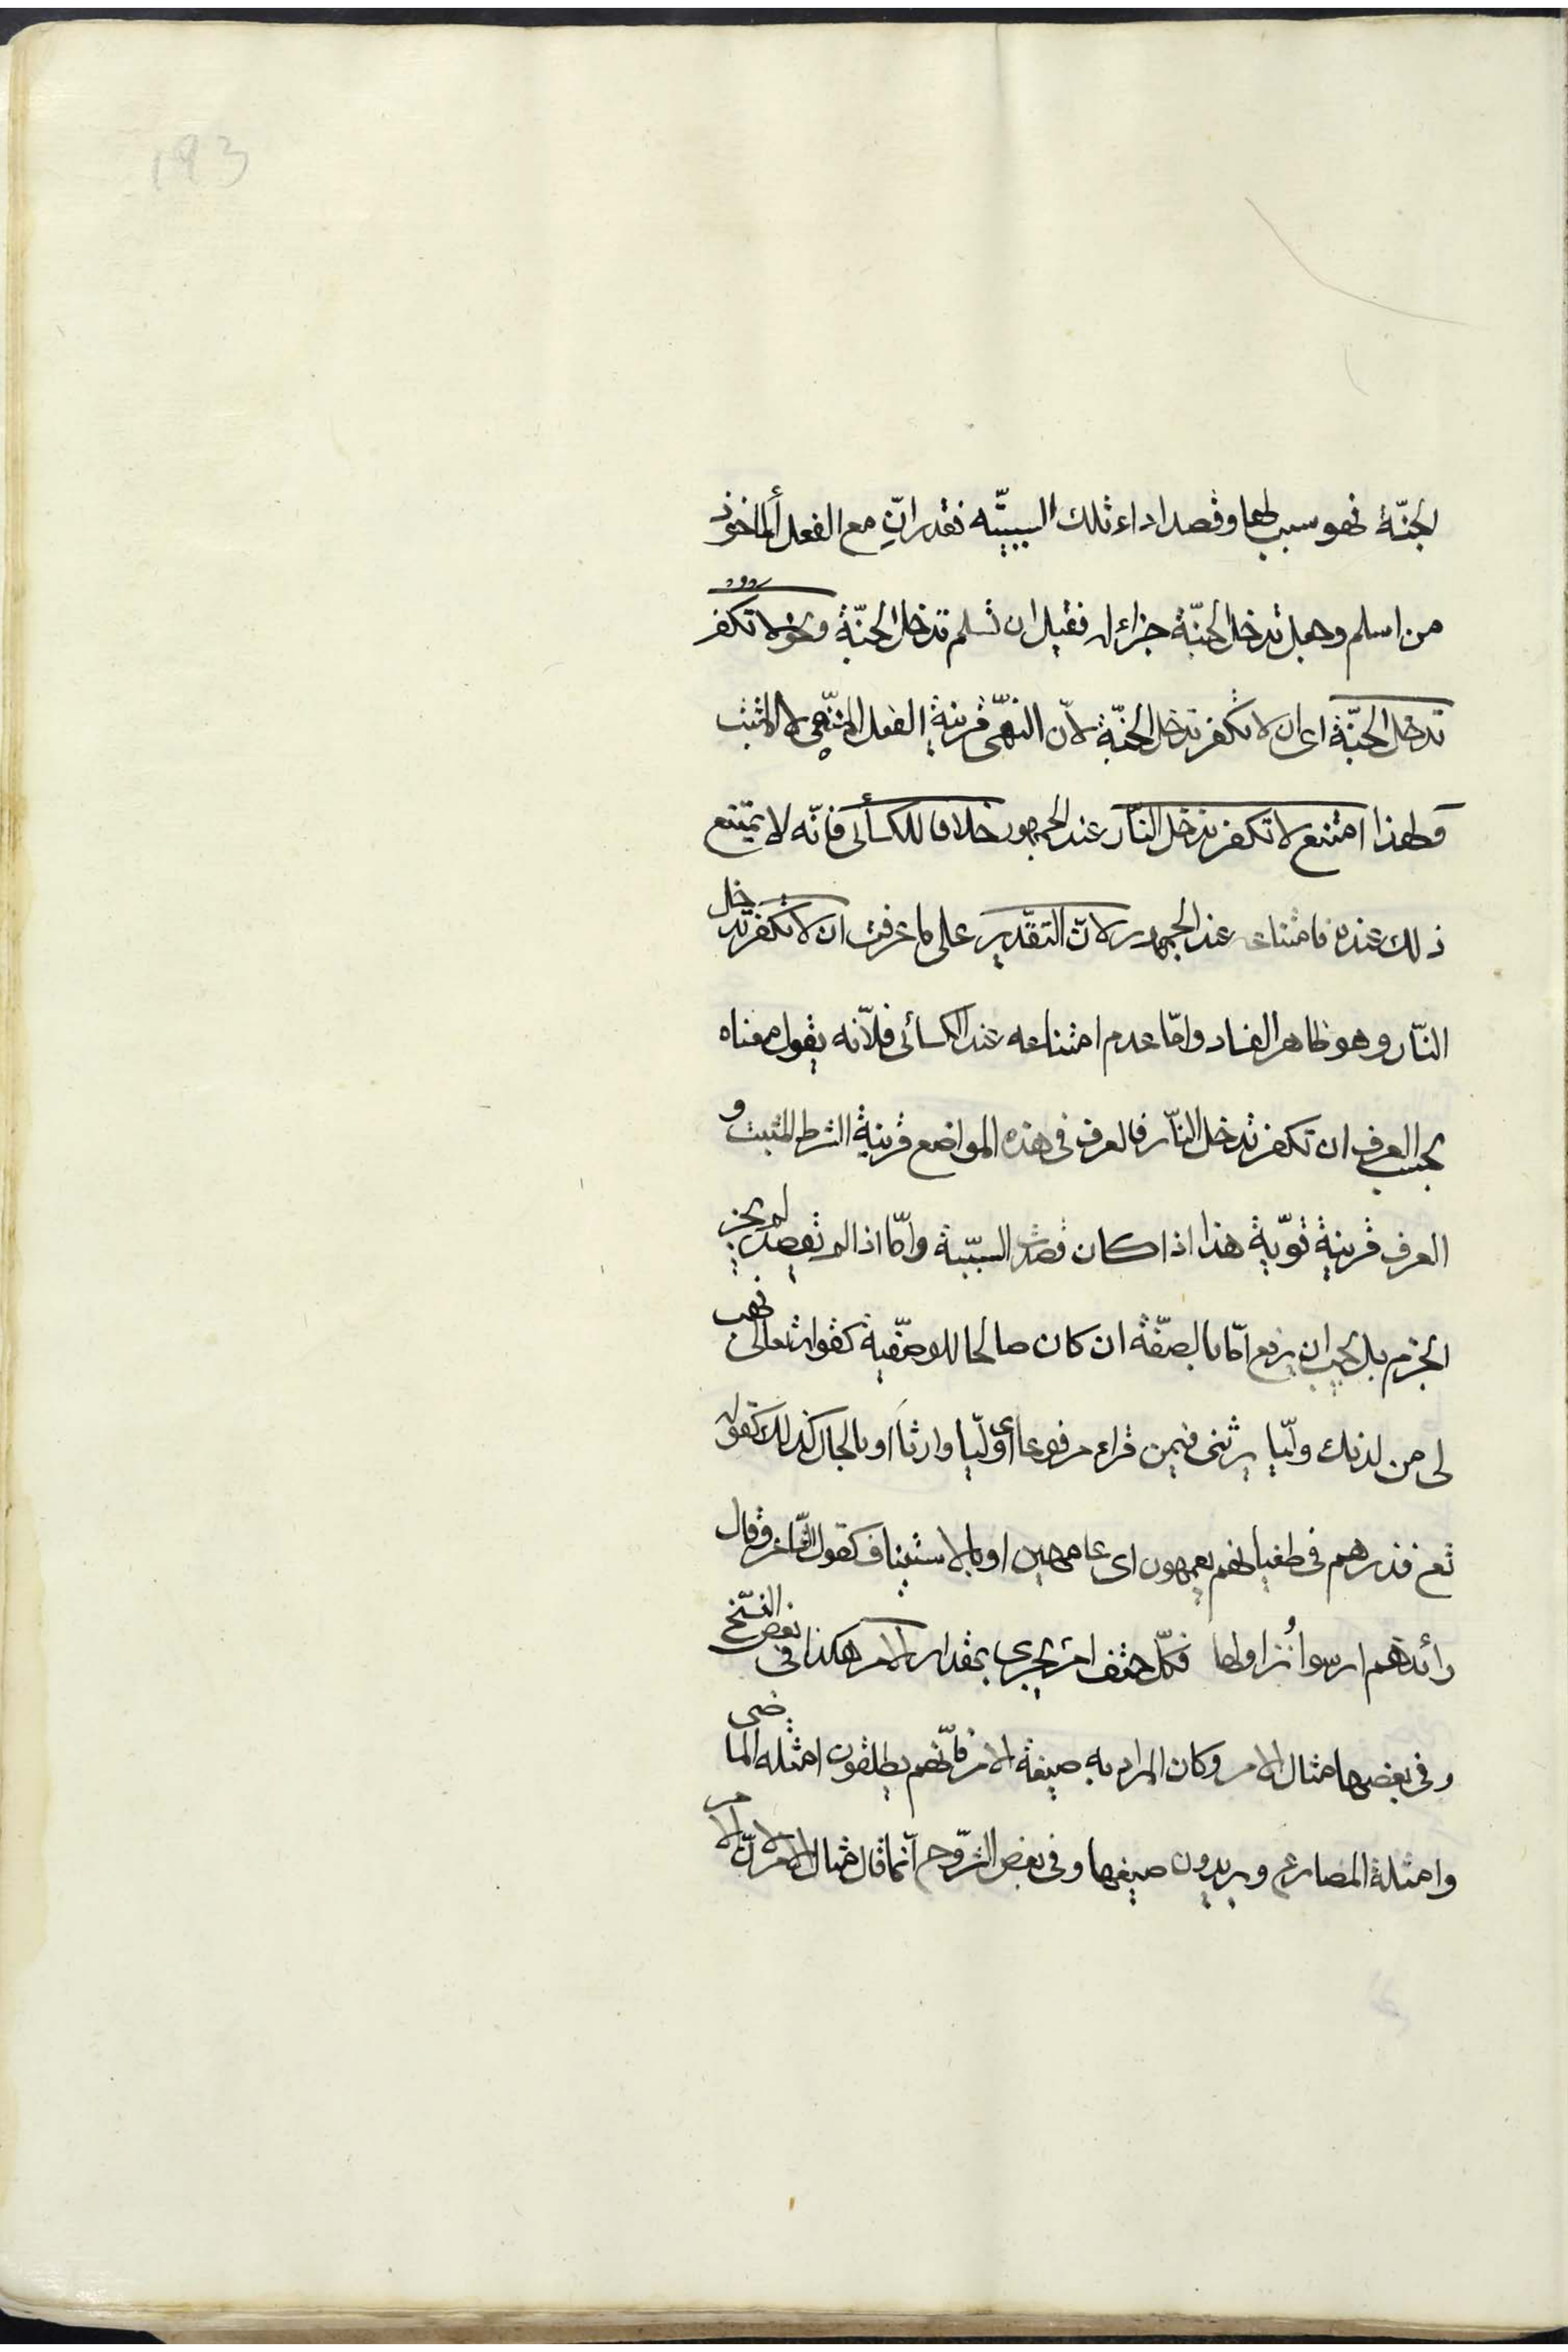 193
الجنّة فهو سبب لها وقصد اداء تلك السببيّه فقدر انِ مع الفعل المأخوذ
من اسلم وجعل تدخل الجنّة جزاء له فقيل ان تسلم تدخل الجنّة ونحو لا تكفر
تدخل الجنّة اى ان لا تكفر تدخل الجنّة لانّ النهّى قرينة الفعل المنّهى لا المثبت
ولهذا امتنع لا تكفر تدخل النّار عند الجمهور خلافا للكسأئى فانّه لا يمتنع
ذلك عنده فامتناعه عند الجمهور لانّ التقدير على ما عرفت ان لا تكفر تدخل
النّار وهو ظاهر الفساد وامّا عدم امتناعه عند الكسائى فلأنّه يقول معناه
بحسب العرف ان تكفر تدخل النّار فالعرف فى هذه المواضع قرينة الشرط المثبت و
العرف قرينة قويّة هذا اذا كان قصدت السببيّة وامّا اذا لم تقصد لم يجز
الجزم بل يجب ان يرفع امّا بالصفّة ان كان صالحا للوصفيّة كقوله تعالى فهب
لى من لدنك وليّا يرثنى فيمن قراء مرفوعا اى وليّا وارثا او بالحال كذلك كقوله
تع فذرهم فى طغيانهم يعمهون اى عامهين او بالاستيناف كقول الشّاعر وقال
رائدهم ارسوا نزاولها فكلّ حتف امرئ يجرى بمقدار الامر هكذا فى بعض النسّخ
وفى بعضها مثال الامر وكان المراد به صيغة الامر فانّهم يطلقون امثله الماضى
وامثلة المضارع ويريدون صيغها وفى بعض الشّروح انّما قال مثال الامر لانّ الامر